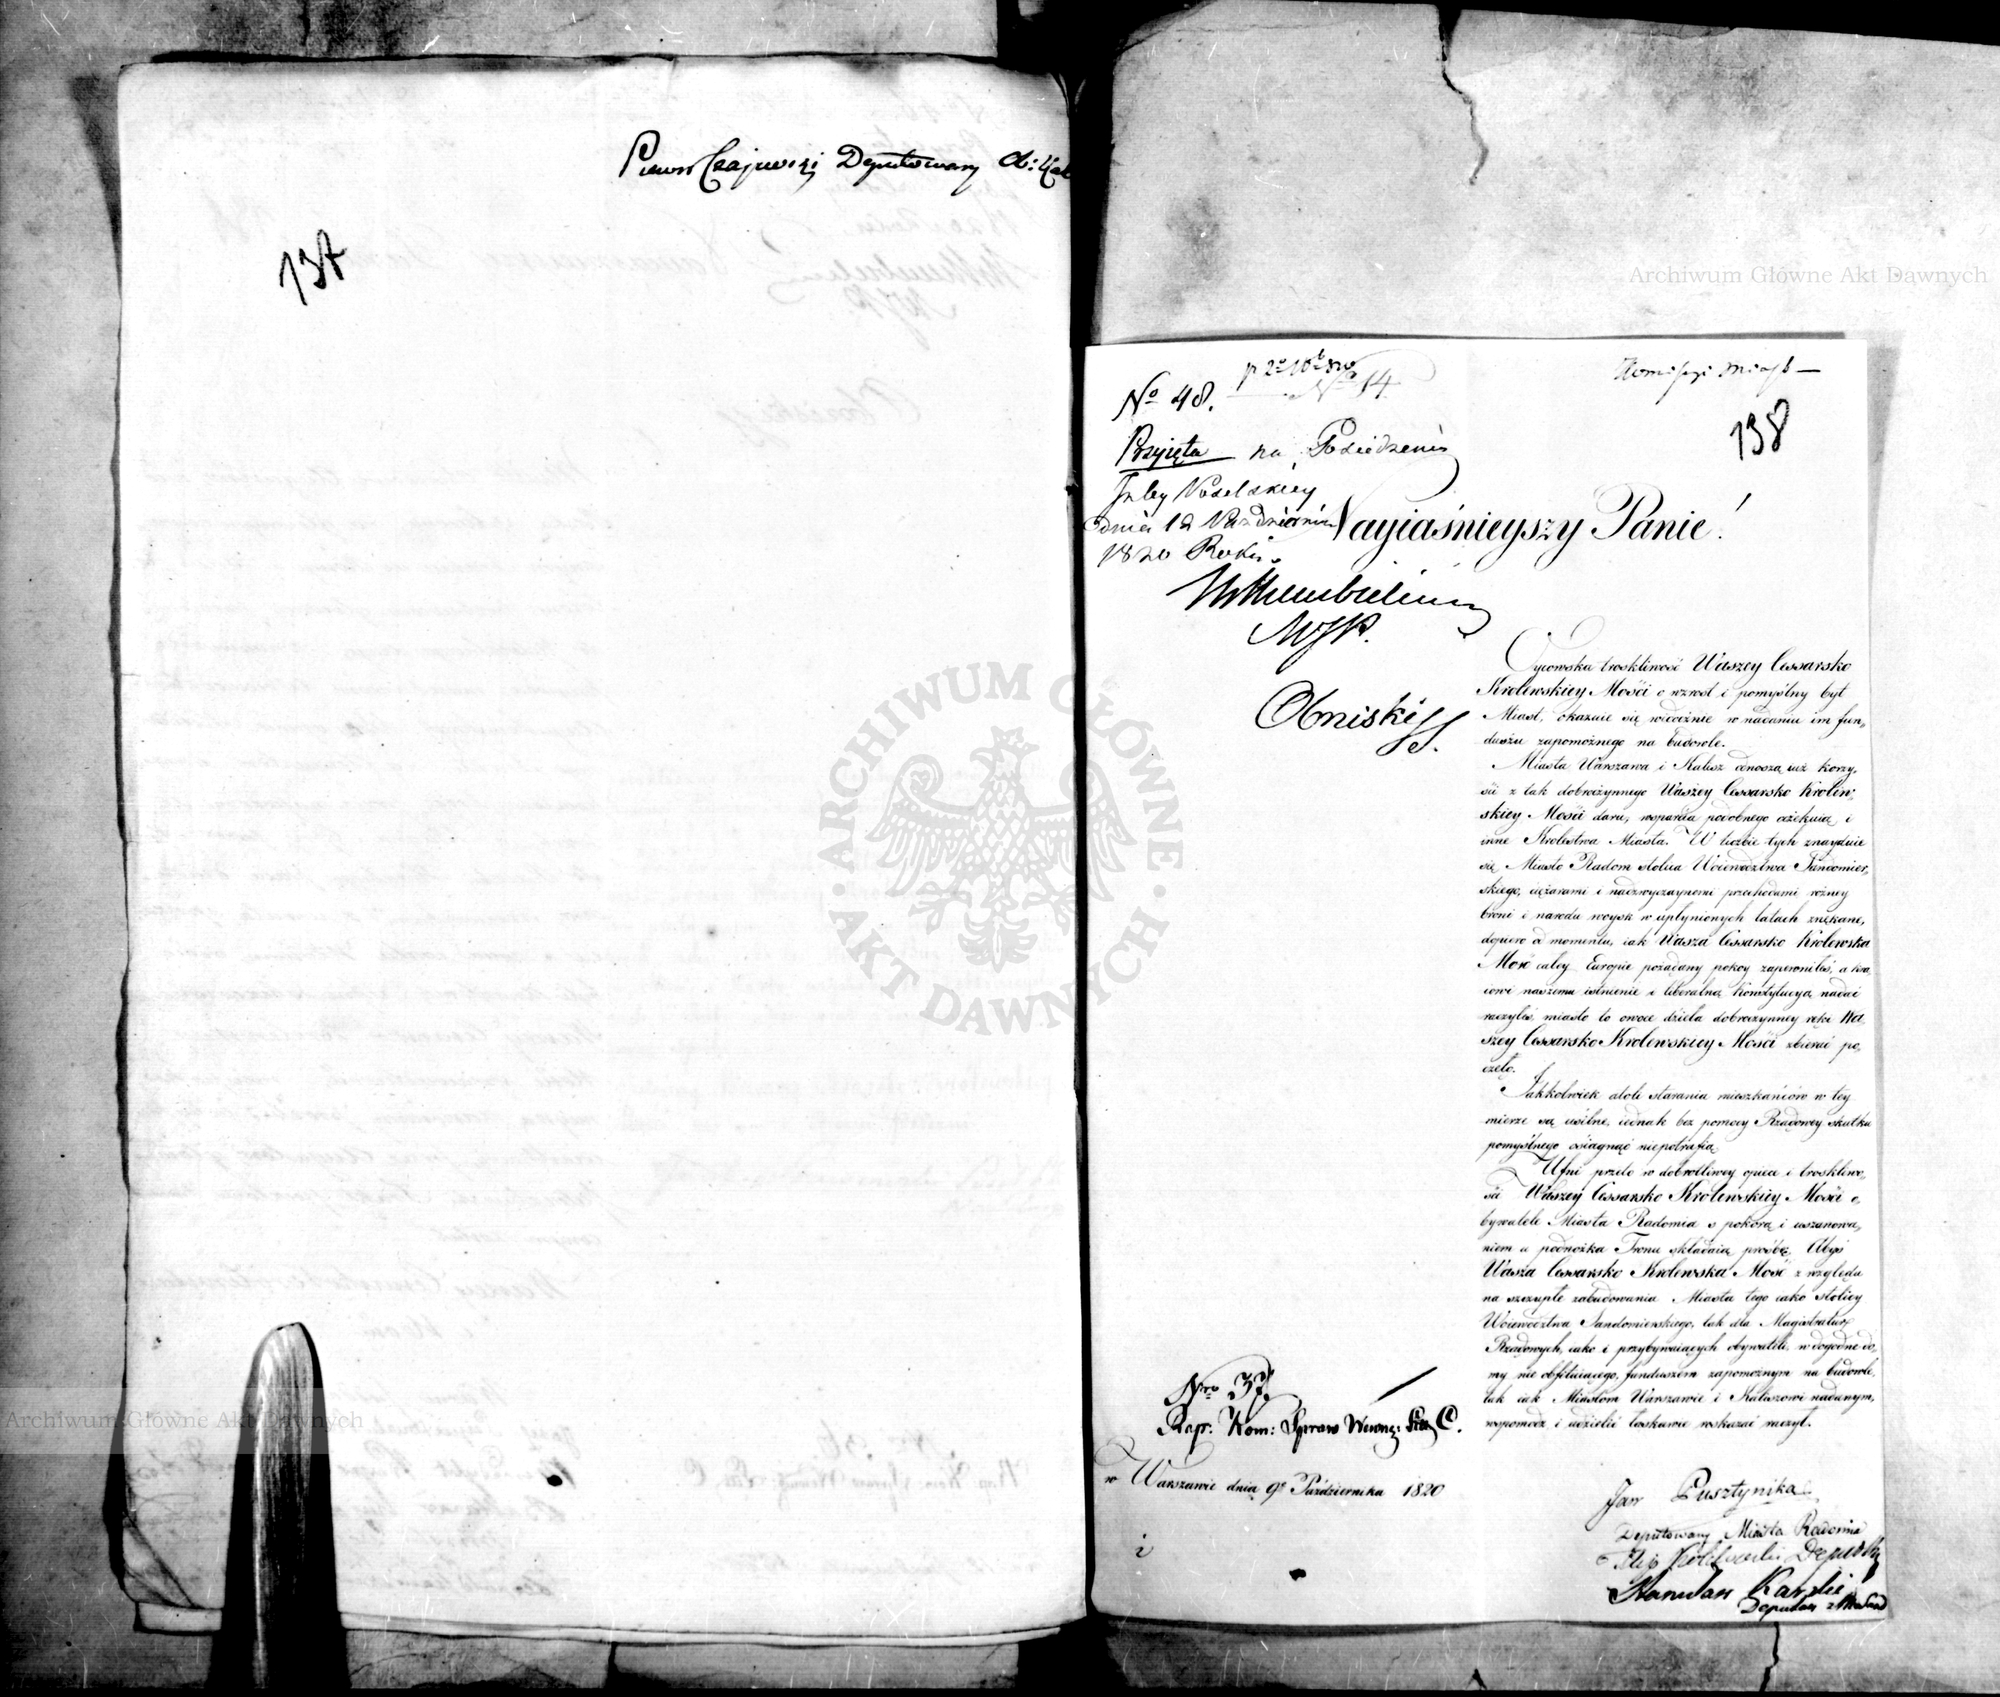 Deputowany
137
Archiwum Główne Akt Dawnych
No 48.
No 14
138
Przyięta na Posiedzeniu
Izby Poselskiey
dnia 12 Października
1820 Roku.
Nayiaśnieyszy Panie!
Oycowska troskliwość Waszey Cessarsko
Krolewskiey Mości o wzrost i pomyślny byt
Miast, okazuie się widocznie w nadaniu im fun„
duszu zapomożnego na budowle.
Miasta Warszawa i Kalisz odnoszą iuż korzy„
ści z tak dobroczynnego Waszey Cessarsko Krolew„
skiey Mości daru, wsparcia podobnego oczekuią i
inne Krolestwa Miasta. W liczbie tych znayduie
się Miasto Radom stolica Woiewodztwa Sandomier„
skiego, ciężarami i nadzwyczaynemi przechodami rożney
broni i narodu woysk w upłynionych latach znękane,
dopiero od momentu, iak Wasza Cessarsko Krolewska
Mość całey Europie pożądany pokoy zapewniłeś, a kra„
iowi naszemu istnienie i liberalną Konstytucyą nadać
raczyłeś, miasto to owoce dzieła dobroczynney ręki Wa„
szey Cessarsko Krolewskiey Mości zbierać po„
częło.
Jakkolwiek atoli starania mieszkańców w tey
mierze są usilne, iednak bez pomocy Rządowey skutku
pomyślnego osiągnąć niepotrafią.
Ufni przeto w dobrotliwey opiece i troskliwo„
ści Waszey Cessarsko Krolewskiey Mości o„
bywatele Miasta Radomia s pokorą i uszanowa„
niem u podnożka Tronu składaią prośbę, Abyś
Wasza Cessarsko Krolewska Mość z względu
na szczupłe zabudowania Miasta tego iako stolicy
Woiewodztwa Sandomierskiego, tak dla Magistratur
Rządowych, iako i przybywaiących obywateli, w dogodne do„
my nie obfituiącego, funduszem zapomożnym na budowle,
tak iak Miastom Warszawie i Kaliszowi nadanym,
wspomodz i udzielić łaskawie wskazać raczył.
Nro 37.
Rap: Kom: Spraw Wewnę: Litt. C.
w Warszawie dnia 9o Października 1820
Jan Pusztynika
Deputowany Miasta Radomia
Stanisław
Archiwum Główne Akt Dawnych
ARCHIWUM GŁÓWNE · AKT DAWNYCH ·